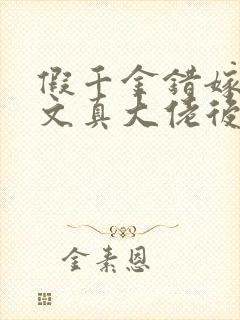 假千金错嫁
文真大佬后
金素恩